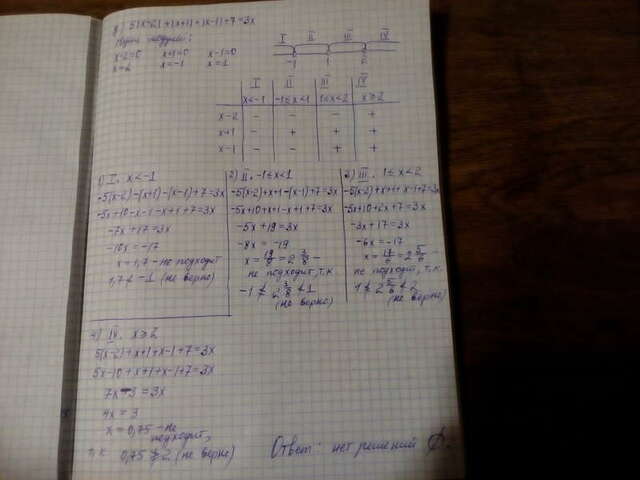 5|x-2|+|x+1|+|x-1|+7=3x
x-2=0 x+1=0 x-1=0
x=2 x=-1 x=1
I II III IV
-1 1 2
I II III IV
x<-1 -1≤x<1 1≤x<2 x≥2
x-2 - - - +
x+1 - + + +
x-1 - - + +
1) I. x<-1
-5(x-2)-(x+1)-(x-1)+7=3x
-5x+10-x-1-x+1+7=3x
-7x+17=3x
-10x=-17
x=1,7 - не подходит
1,7 ≮ -1 (не верно)
2) II. -1≤x<1
-5(x-2)+x+1-(x-1)+7=3x
-5x+10+x+1-x+1+7=3x
-5x+19=3x
-8x=-19
x=19/8=2 3/8 -
не подходит, т.к
-1 ≮ 2 3/8 ≮ 1
(не верно)
3) III. 1≤x<2
-5(x-2)+x+1+x-1+7=3x
-5x+10+2x+7=3x
-3x+17=3x
-6x=-17
x=17/6=2 5/6 -
не подходит, т.к.
1 ≮ 2 5/6 ≮ 2
(не верно)
4) IV. x≥2
5(x-2)+x+1+x-1+7=3x
5x-10+x+1+x-1+7=3x
7x-3=3x
4x=3
x=0,75 - не
подходит,
т.к 0,75 ≱ 2 (не верно)
Ответ: нет решений ∅.